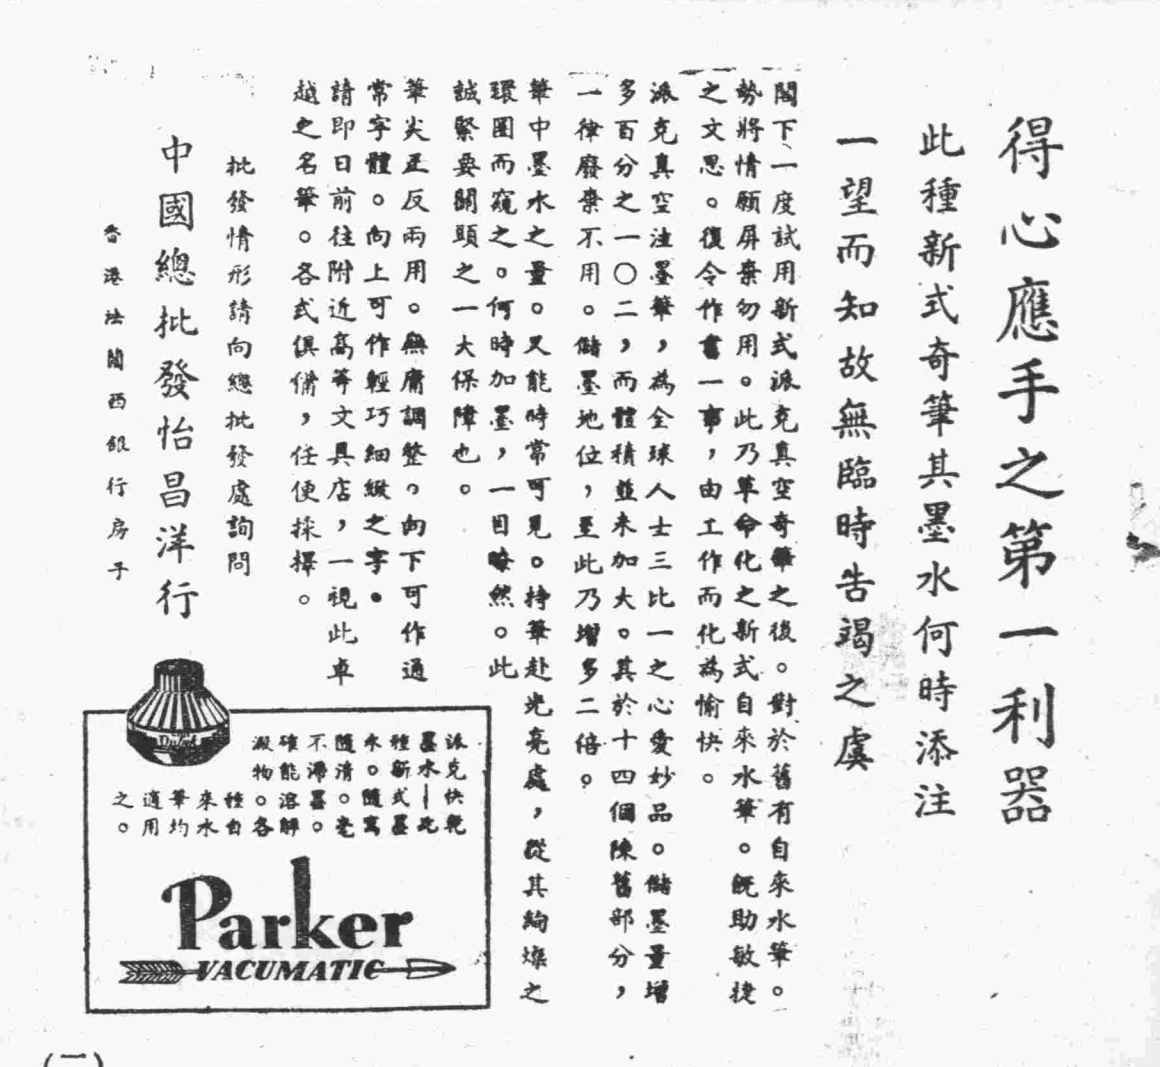 得心應手之第一利器
此種新式奇筆其墨水何時添注
一望而知故無臨時告竭之虞
閣下一度試用新式派克真空奇筆之後。對於舊有自來水筆。
勢將情願屏棄勿用。此乃革命化之新式自來水筆。既助敏捷
之文思。復令作書一事，由工作而化為愉快。
派克真空注墨筆，為全球人士三比一之心愛妙品。儲墨量增
多百分之一〇二，而體積並未加大。其於十四個陳舊部分，
一律廢棄不用。儲墨地位，至此乃增多二倍。
筆中墨水之量。又能時常可見。持筆赴光亮處，從其絢燦之
環圈而窺之。何時加墨，一目瞭然。此
誠緊要關頭之一大保障也。
筆尖正反兩用。無庸調整。向下可作通
常字體。向上可作輕巧細緻之字。
請即日前往附近高等文具店，一視此卓
越之名筆。各式俱備，任便採擇。
批發情形請向總批發處詢問
中國總批發怡昌洋行
香港法蘭西銀行房子
派克快乾
墨水—此
種新式墨
水。隨寫
隨清。毫
不滯墨。
確能溶解
澱物。各
種自
來水
筆均
適用
之。
Parker
VACUMATIC
(二)